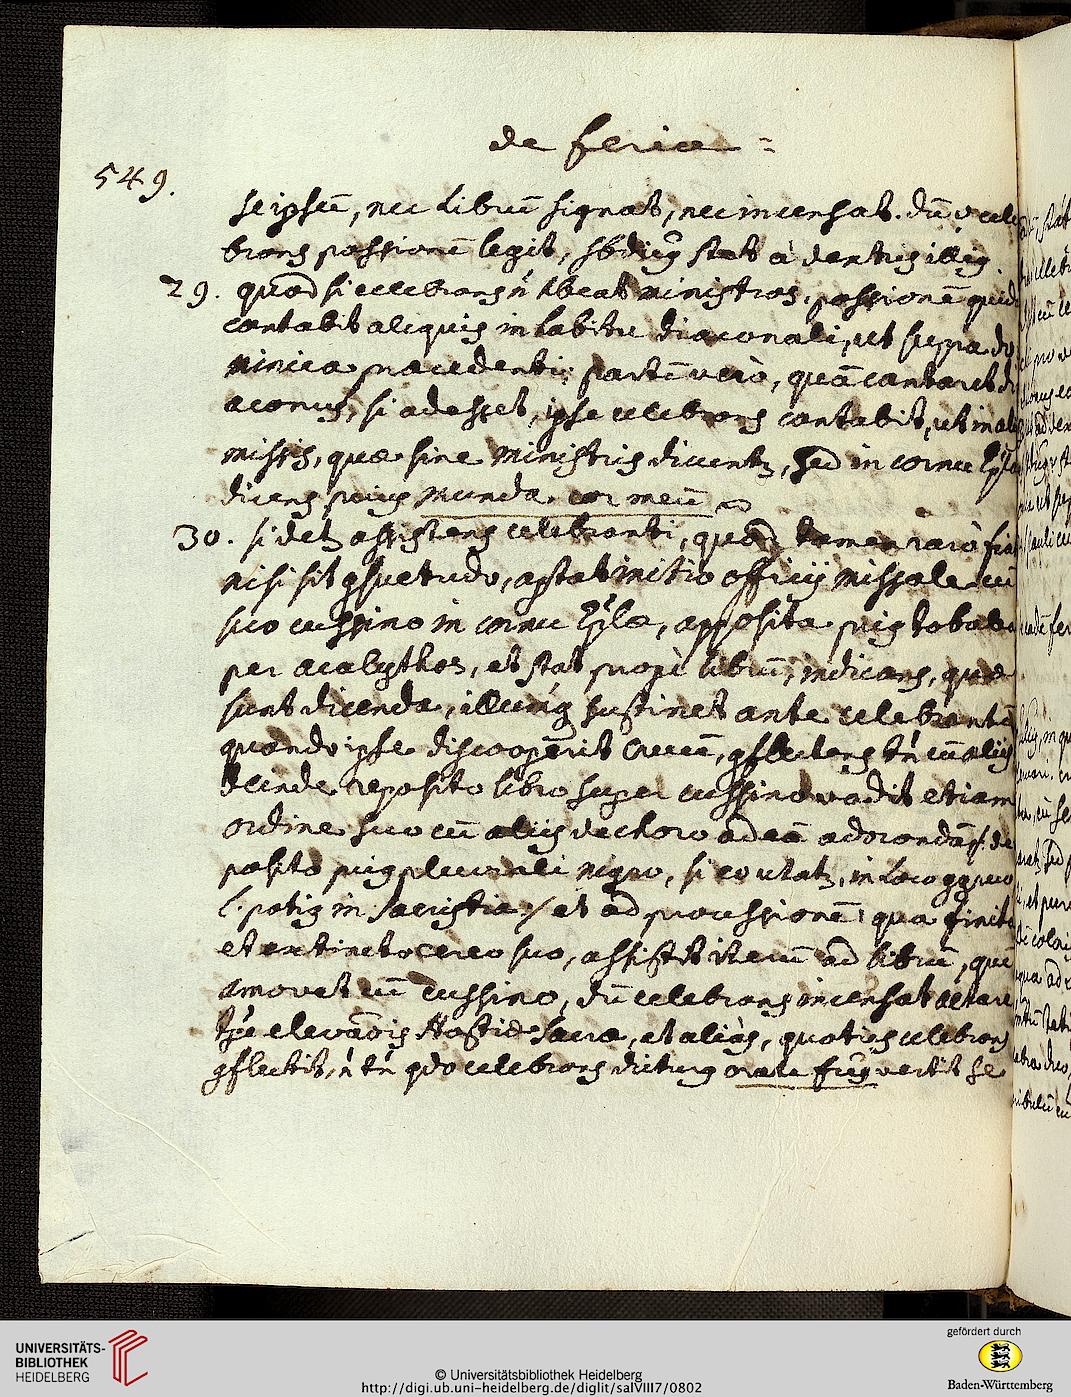 de feria =
549.
seipsū, nec librū signat, nec incensat. dū v̊ cele
brans passionē legit, sbdiac9 stat à dextris illi9.
29. quod si celebrans ń hbeat ministros, passionē quidē
cantabit aliquis in habitu diaconali, ut supra do
minica praecedenti; partē verò, quā cantaret di
aconus, si adesset, ipse celebrans cantabit, ut in aliis
missis, quae sine ministris dicentr, sed in cornu Epłae
dicens prius munda cor meū
30. si detr assistens celebranti, quod tamen rarò fiat
nisi sit gsuetudo, aptat initio officij missale cū
suo cussino in cornu Epłae, apposita prius tobalea
per acolythos, et stat propè librū, indicans, quae
sunt dicenda, illumq sustinet ante celebrantē
quando ipse discooperit Crucē, gflectens tń cū aliis
deinde reposito libro super cussino vadit etiam
ordine suo cū aliis de choro ad eā adorandā /: de
posito prius pluviali nigro, si eo utatr, in loco ggruo
l. potius in Sacristia :/ et ad processionē, qua finita
et extincto cereo suo, assistit iterū ad librū, quē
amovet cū cussino, dū celebrans incensat altare
tpe elevaōis Hostiae Sacrae, et alias, quoties celebrans
gflectit, ń tń qdo celebrans dicturus orate frēs vertit se
UNIVERSITÄTS-
BIBLIOTHEK
HEIDELBERG
© Universitätsbibliothek Heidelberg
http://digi.ub.uni-heidelberg.de/diglit/salVIII7/0802
gefördert durch
Baden-Württemberg